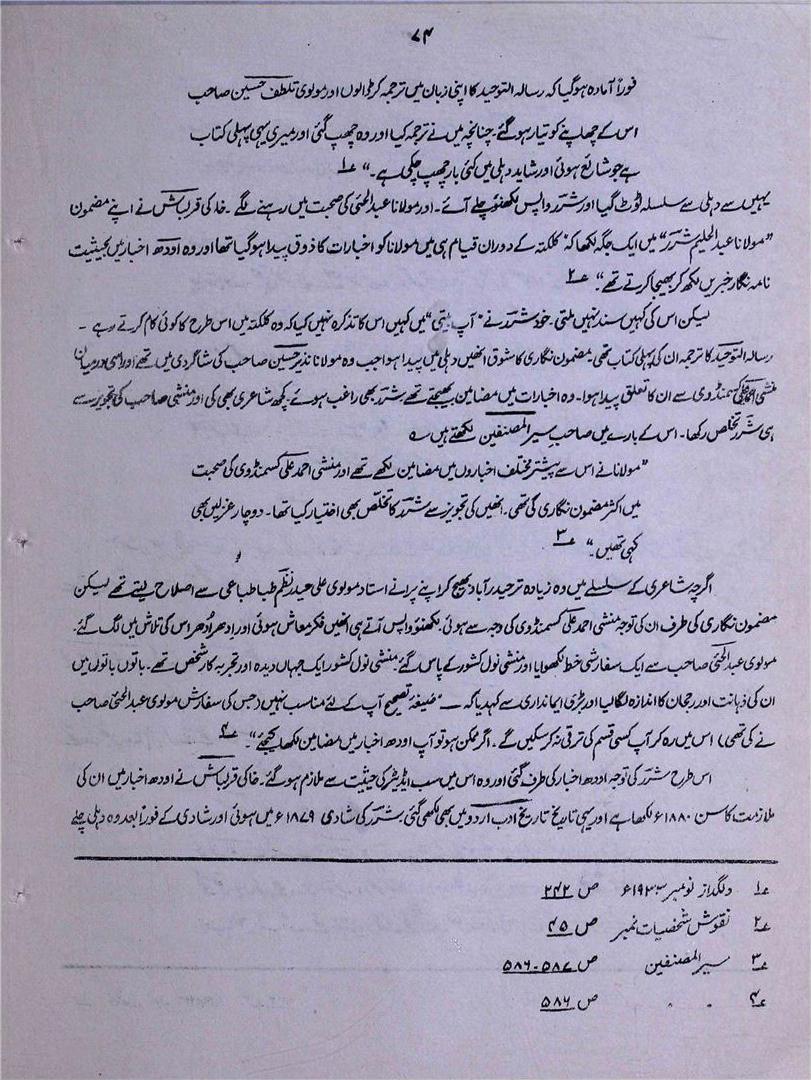 ۷۴
فوراً آمادہ ہوگیا کہ رسالہ التوحید کا اپنی زبان میں ترجمہ کر ڈالوں اور مولوی تلطف حسین صاحب
اس کے چھاپنے کو تیار ہو گئے۔ چنانچہ میں نے ترجمہ کیا اور وہ چھپ گئی اور میری یہی پہلی کتاب
ہے جو شائع ہوئی اور شاید دہلی میں کئی بار چھپ چکی ہے۔" ۱؎
یہیں سے دہلی سے سلسلہ ٹوٹ گیا اور شررؔ واپس لکھنؤ چلے آئے۔ اور مولانا عبدالحئی کی صحبت میں رہنے لگے۔ خاکی قزلباش نے اپنے مضمون
"مولانا عبدالحلیم شررؔ" میں ایک جگہ لکھا کہ "کلکتہ کے دوران قیام ہی میں مولانا کو اخبارات کا ذوق پیدا ہوگیا تھا اور وہ اودھ اخبار میں بحیثیت
نامہ نگار خبریں لکھ کر بھیجا کرتے تھے"۔ ۲؎
لیکن اس کی کہیں سند نہیں ملتی۔ خود شررؔ نے "آپ بیتی" میں کہیں اس کا تذکرہ نہیں کیا کہ وہ کلکتہ میں اس طرح کا کوئی کام کرتے رہے ۔
رسالہ التوحید کا ترجمہ ان کی پہلی کتاب تھی۔ مضمون نگاری کا شوق انھیں دہلی میں پیدا ہوا جب وہ مولانا نذیر حسین صاحب کی شاگردی میں تھے اور اسی درمیان
منشی احمد علی کسمنڈوی سے ان کا تعلق پیدا ہوا۔ وہ اخبارات میں مضامین بھیجتے تھے شررؔ بھی راغب ہوئے۔ کچھ شاعری بھی کی اور منشی صاحب کی تجویز سے
ہی شررؔ تخلص رکھا۔ اس کے بارے میں صاحب سیر المصنفین لکھتے ہیں ؎
"مولانا نے اس سے پیشتر مختلف اخباروں میں مضامین لکھے تھے اور منشی احمد علی کسمنڈوی کی صحبت
میں اکثر مضمون نگاری کی تھی۔ انھیں کی تجویز سے شررؔ کا تخلص بھی اختیار کیا تھا۔ دوچار غزلیں بھی
کہی تھیں۔" ۳؎
اگرچہ شاعری کے سلسلے میں وہ زیادہ تر حیدرآباد بھیج کر اپنے پرانے استاد مولوی علی حیدر نظمؔ طباطبائی سے اصلاح لیتے تھے لیکن
مضمون نگاری کی طرف ان کی توجہ منشی احمد علی کسمنڈوی کی وجہ سے ہوئی۔ لکھنؤ واپس آتے ہی انھیں فکر معاش ہوئی اور ادھر اُدھر اس کی تلاش میں لگ گئے۔
مولوی عبدالحئی صاحب سے ایک سفارشی خط لکھوایا اور منشی نول کشور کے پاس گئے۔ منشی نول کشور ایک جہاں دیدہ اور تجربہ کار شخص تھے۔ باتوں باتوں میں
ان کی ذہانت اور رجحان کا اندازہ لگالیا اور بڑی ایمانداری سے کہدیا کہ ـــ "صیغۂ تصحیح آپ کے لئے مناسب نہیں (جس کی سفارش مولوی عبدالحئی صاحب
نے کی تھی) اس میں رہ کر آپ کسی قسم کی ترقی نہ کرسکیں گے۔ اگر ممکن ہو تو آپ اودھ اخبار میں مضامین لکھا کیجئے"۔ ۴؎
اس طرح شررؔ کی توجہ اودھ اخبار کی طرف گئی اور وہ اس میں سب ایڈیٹر کی حیثیت سے ملازم ہوگئے۔ خاکی قزلباش نے اودھ اخبار میں ان کی
ملازمت کا سن ۱۸۸۰ء لکھا ہے اور یہی تاریخ تاریخ ادب اردو میں بھی لکھی گئی شررؔ کی شادی ۱۸۷۹ء میں ہوئی اور شادی کے فوراً بعد وہ دہلی چلے
۱؎ دلگداز نومبر ۱۹۳۳ء ص ۲۴۲
۲؎ نقوش شخصیات نمبر ص ۴۵
۳؎ سیر المصنفین ص ۵۸۷-۵۸۶
۴؎ " " ص ۵۸۶